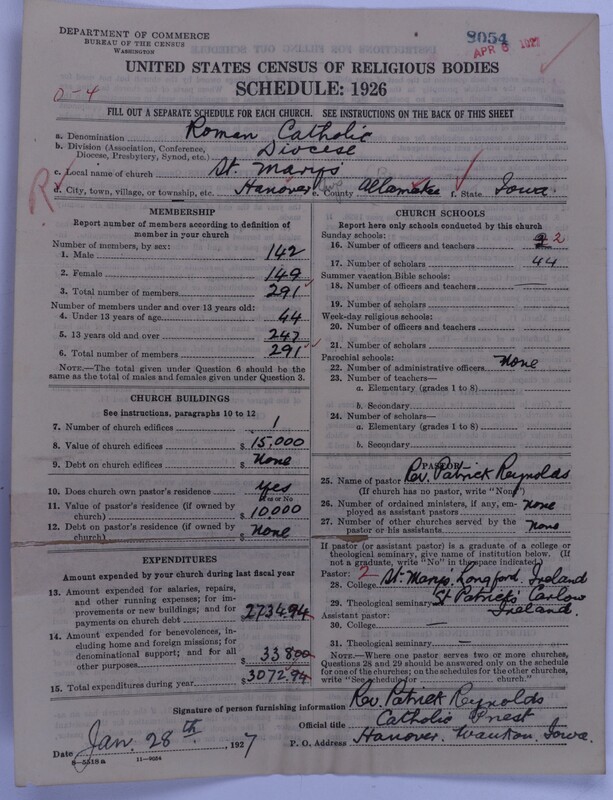 DEPARTMENT OF COMMERCE
BUREAU OF THE CENSUS
WASHINGTON
8054
APR 6 1927
UNITED STATES CENSUS OF RELIGIOUS BODIES
SCHEDULE: 1926
0-4
FILL OUT A SEPARATE SCHEDULE FOR EACH CHURCH. SEE INSTRUCTIONS ON THE BACK OF THIS SHEET
a. Denomination Roman Catholic
b. Division (Association, Conference, Diocese, Presbytery, Synod, etc.) Diocese
c. Local name of church St. Marys
d. City, town, village, or township, etc. Hanover e. County Allamakee f. State Iowa
R
MEMBERSHIP
Report number of members according to definition of
member in your church
Number of members, by sex:
1. Male 142
2. Female 149
3. Total number of members 291
Number of members under and over 13 years old:
4. Under 13 years of age 44
5. 13 years old and over 247
6. Total number of members 291
NOTE.—The total given under Question 6 should be the
same as the total of males and females given under Question 3.
CHURCH BUILDINGS
See instructions, paragraphs 10 to 12
7. Number of church edifices 1
8. Value of church edifices $ 15,000
9. Debt on church edifices $ None
10. Does church own pastor's residence Yes
Yes or No
11. Value of pastor's residence (if owned by
church) $ 10,000
12. Debt on pastor's residence (if owned by
church) $ None
EXPENDITURES
Amount expended by your church during last fiscal year
13. Amount expended for salaries, repairs,
and other running expenses; for im-
provements or new buildings; and for
payments on church debt $ 2734.94
14. Amount expended for benevolences, in-
cluding home and foreign missions; for
denominational support; and for all
other purposes $ 338.00
15. Total expenditures during year $ 3072.94
CHURCH SCHOOLS
Report here only schools conducted by this church
Sunday schools:
16. Number of officers and teachers 2 2
17. Number of scholars 44
Summer vacation Bible schools:
18. Number of officers and teachers —
19. Number of scholars
Week-day religious schools:
20. Number of officers and teachers
21. Number of scholars
Parochial schools:
22. Number of administrative officers None
23. Number of teachers—
a. Elementary (grades 1 to 8)
b. Secondary
24. Number of scholars—
a. Elementary (grades 1 to 8)
b. Secondary
PASTOR
25. Name of pastor Rev. Patrick Reynolds
(If church has no pastor, write "None")
26. Number of ordained ministers, if any, em-
ployed as assistant pastors None
27. Number of other churches served by the
pastor or his assistants None
If pastor (or assistant pastor) is a graduate of a college or
theological seminary, give name of institution below. (If
not a graduate, write "No" in the space indicated.)
Pastor: 2
28. College St. Marys, Longford, Ireland
29. Theological seminary St Patricks Carlow
Ireland.
Assistant pastor:
30. College —
31. Theological seminary —
NOTE.—Where one pastor serves two or more churches,
Questions 28 and 29 should be answered only on the schedule
for one of the churches; on the schedules for the other churches,
write "See schedule for church."
Signature of person furnishing information Rev. Patrick Reynolds
Official title Catholic Priest
Date Jan. 28th, 1927
P. O. Address Hanover. Waukon, Iowa.
8-5518a
11-8054